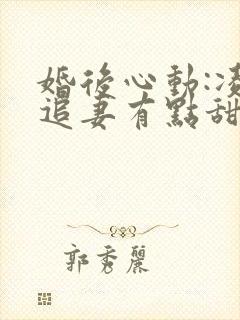 婚後心動:凌
追妻有點甜
郭秀麗